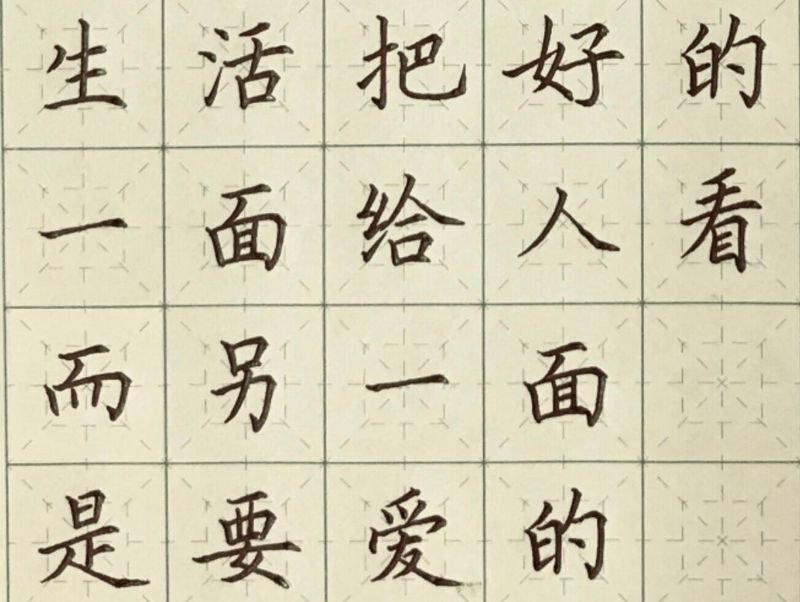 生活把好的
一面给人看
而另一面
是要爱的